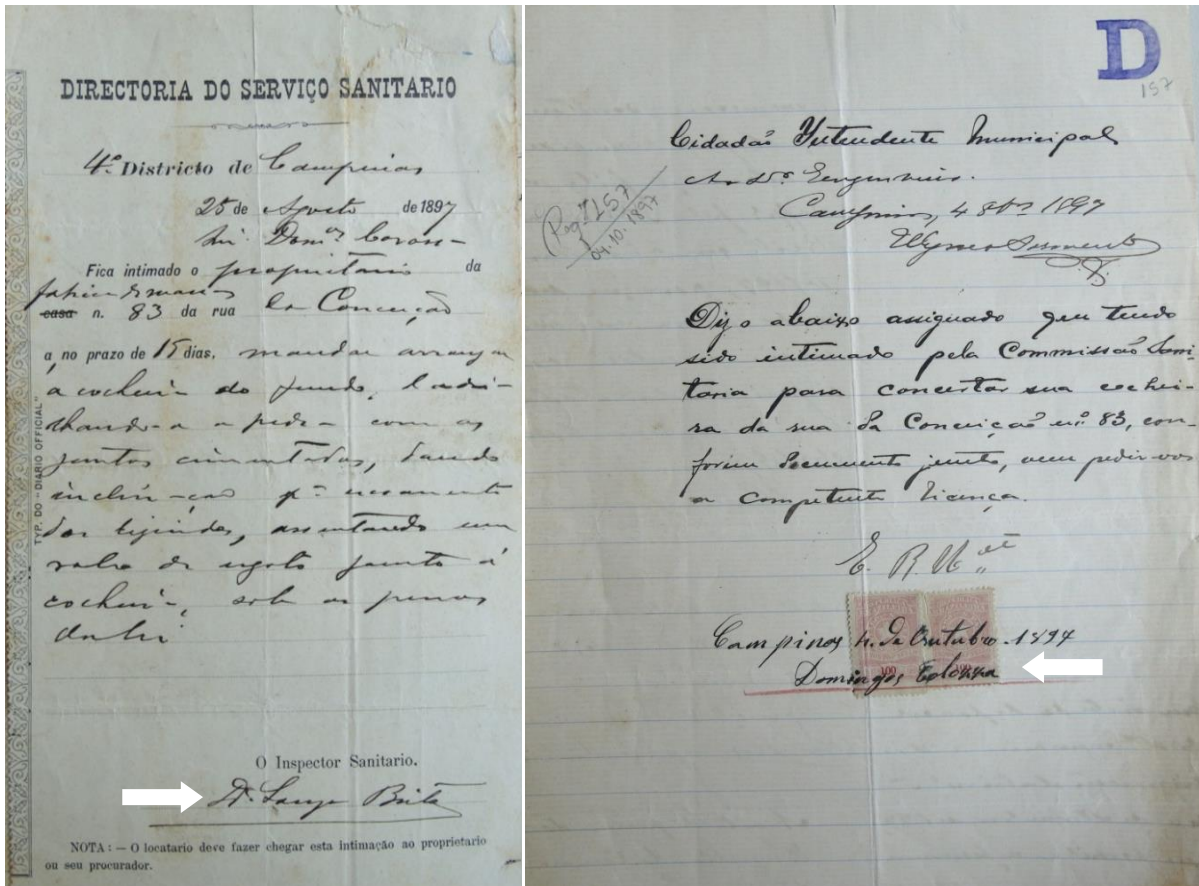 DIRECTORIA DO SERVIÇO SANITARIO
4º Districto de Campinas
25 de Agosto de 1897
Snr. Domos
Fica intimado o proprietario da
casa n. 83 da rua da Conceição
a, no prazo de 15 dias, mandar arranjar
a cocheira do fundo, ladri-
lhando-a a pedra com as
juntas cimentadas, dando
inclinação pª escoamento
dos liquidos, assentando um
ralo de esgoto junto á
cocheira, sob as penas
da lei
O Inspector Sanitario.
Dr. Brito
NOTA: — O locatario deve fazer chegar esta intimação ao proprietario
ou seu procurador.
TYP. DO "DIARIO OFFICIAL"
D
157
Cidadão Intendente Municipal
Ao Dr. Engenheiro.
Campinas, 4 8bro 1897
Pag. 157
04.10.1897
Diz o abaixo assignado que tendo
sido intimado pela Commissão Sani-
taria para concertar sua cochei-
ra da rua da Conceição nº 83, con-
forme documento junto, vem pedir-vos
a competente licença.
E. R. Mcê
Campinas 4 de Outubro 1897
100 100
Domingos